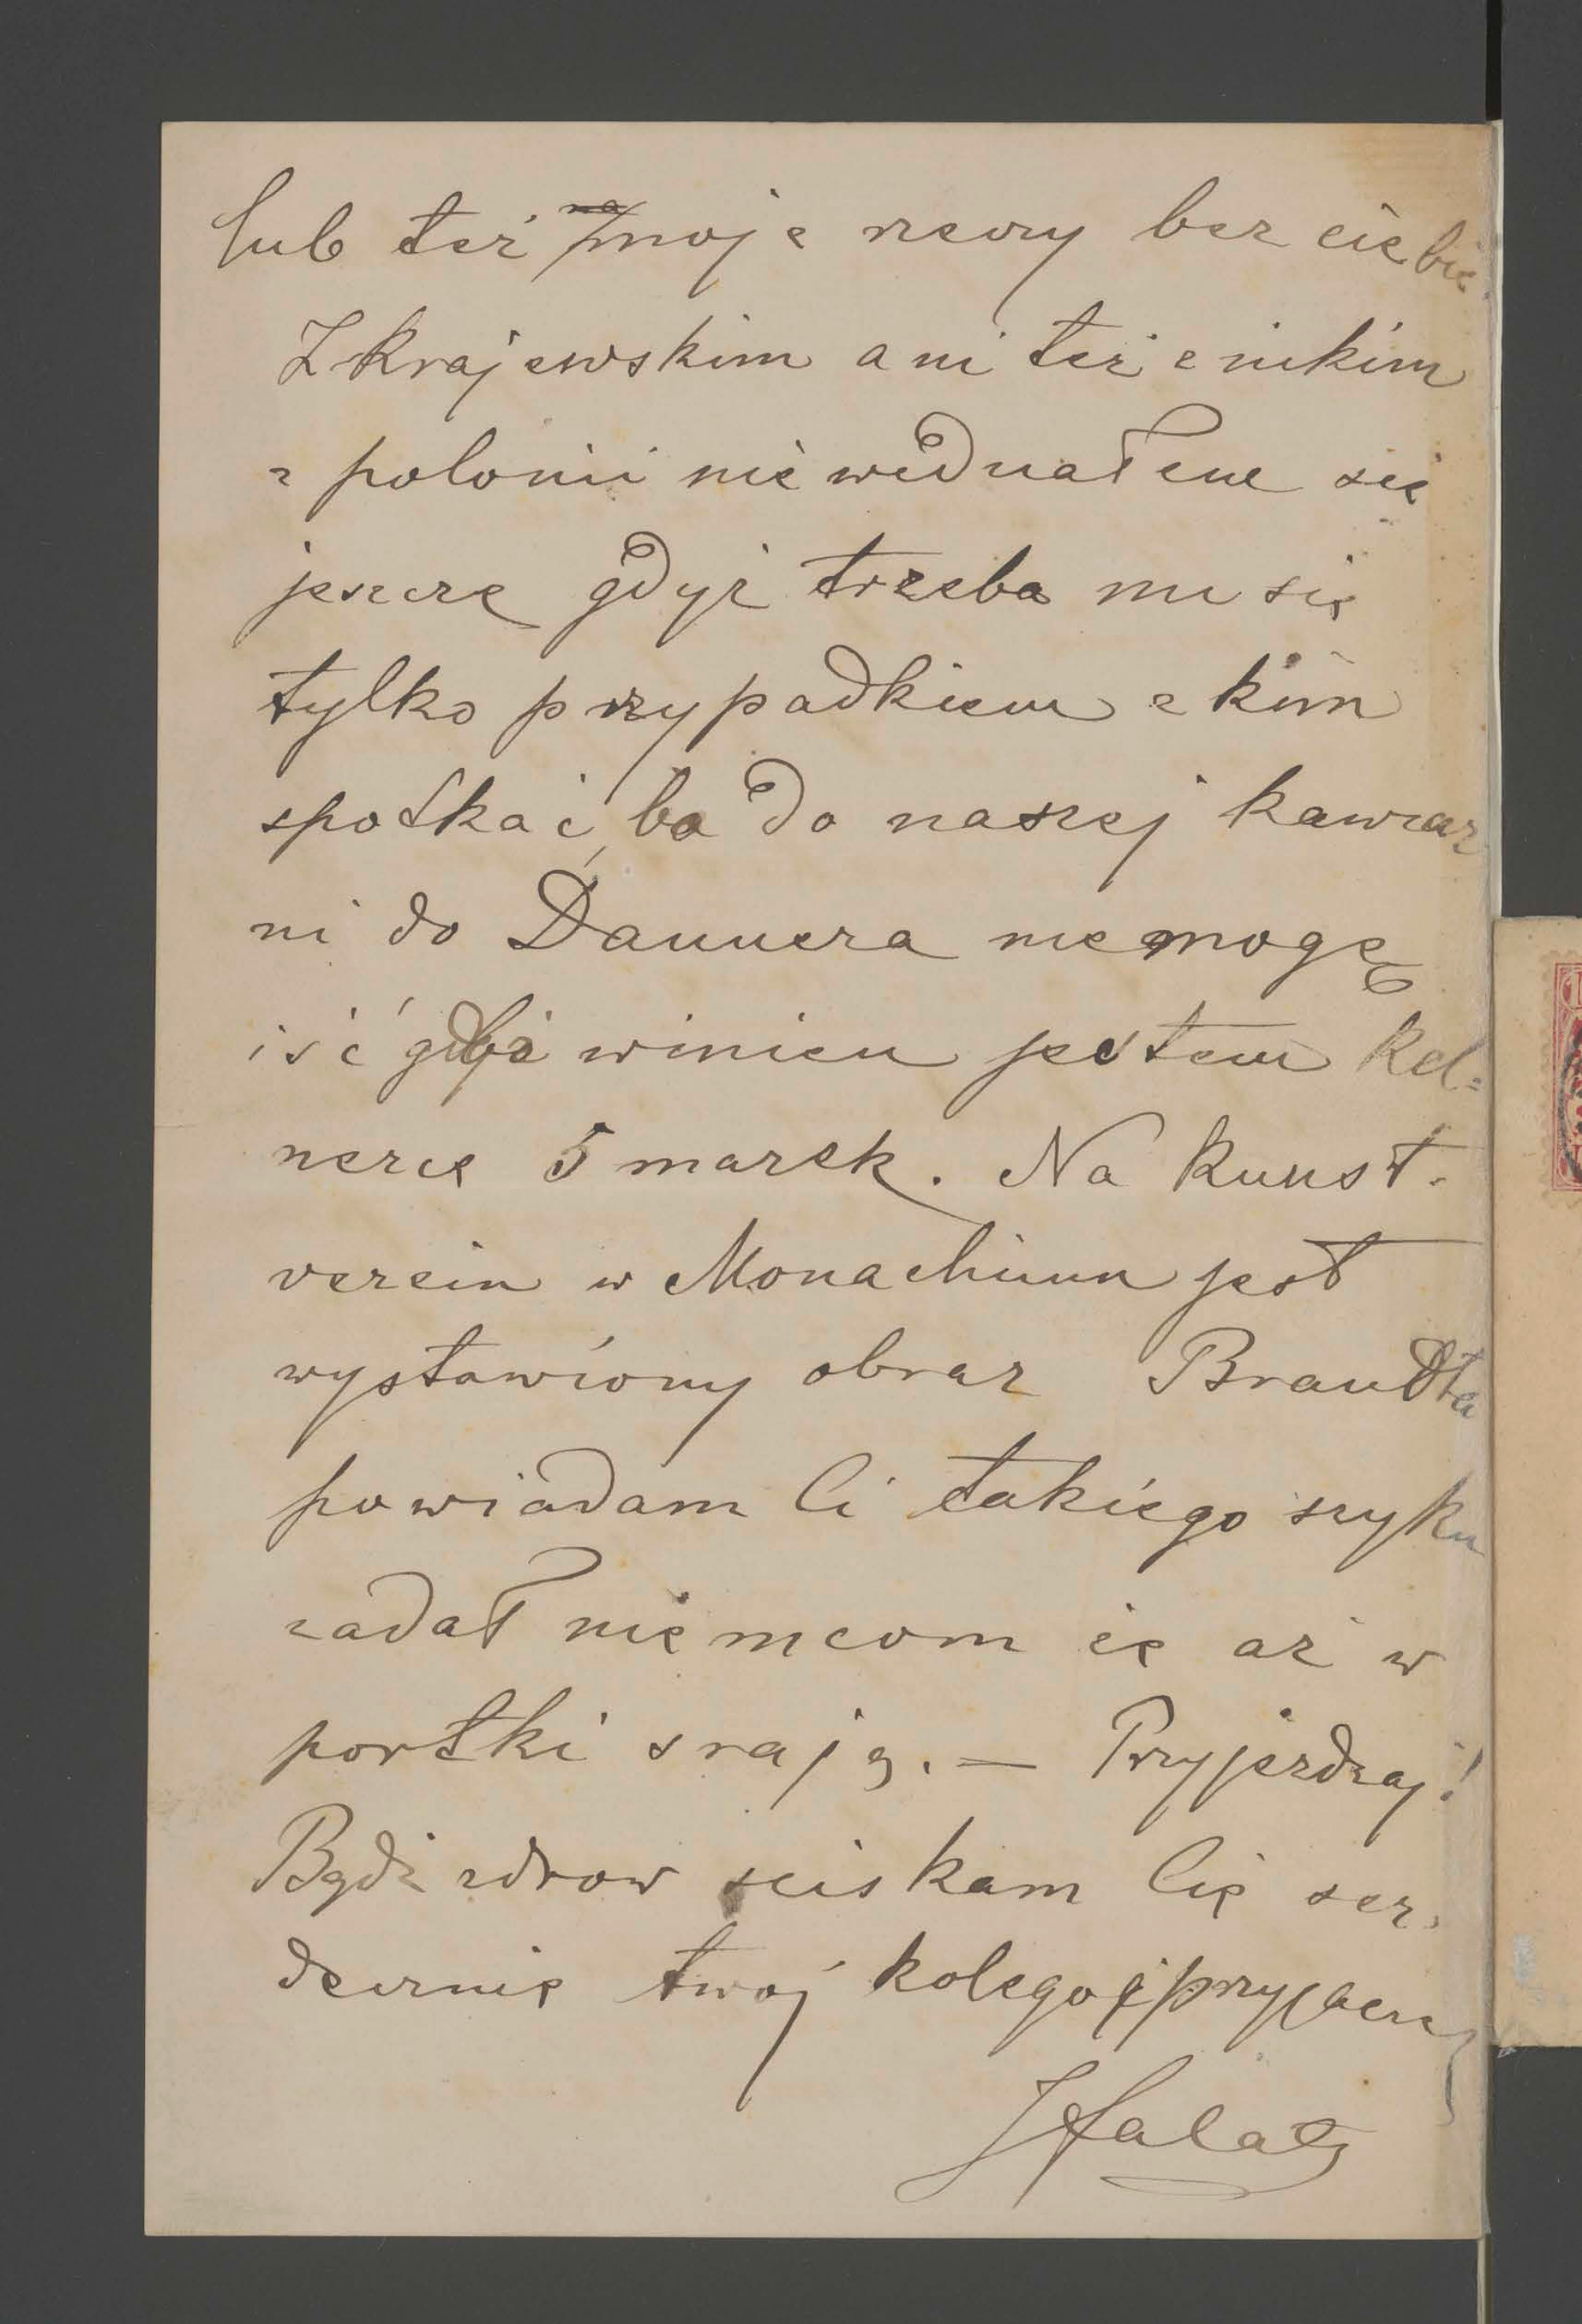 lub też moje rzeczy bez ciebie.
Z Krajewskim ani też z nikim
z polonii nie widziałem się
jeszcze gdyż trzeba mi się
tylko przypadkiem z kim
spotkać, bo do naszej kawiar
ni do Dannera nie mogę
iść gdyż winien jestem kel=
nerce 5 marek. Na Kunst-
verein w Monachium jest
wystawiony obraz Brandta
powiadam Ci takiego szyku
zadał niemcom że aż w
portki srają. — Przyjezdzaj!
Bądź zdrow sciskam Cię ser-
decznie twój kolega i przyjaciel
JFałat